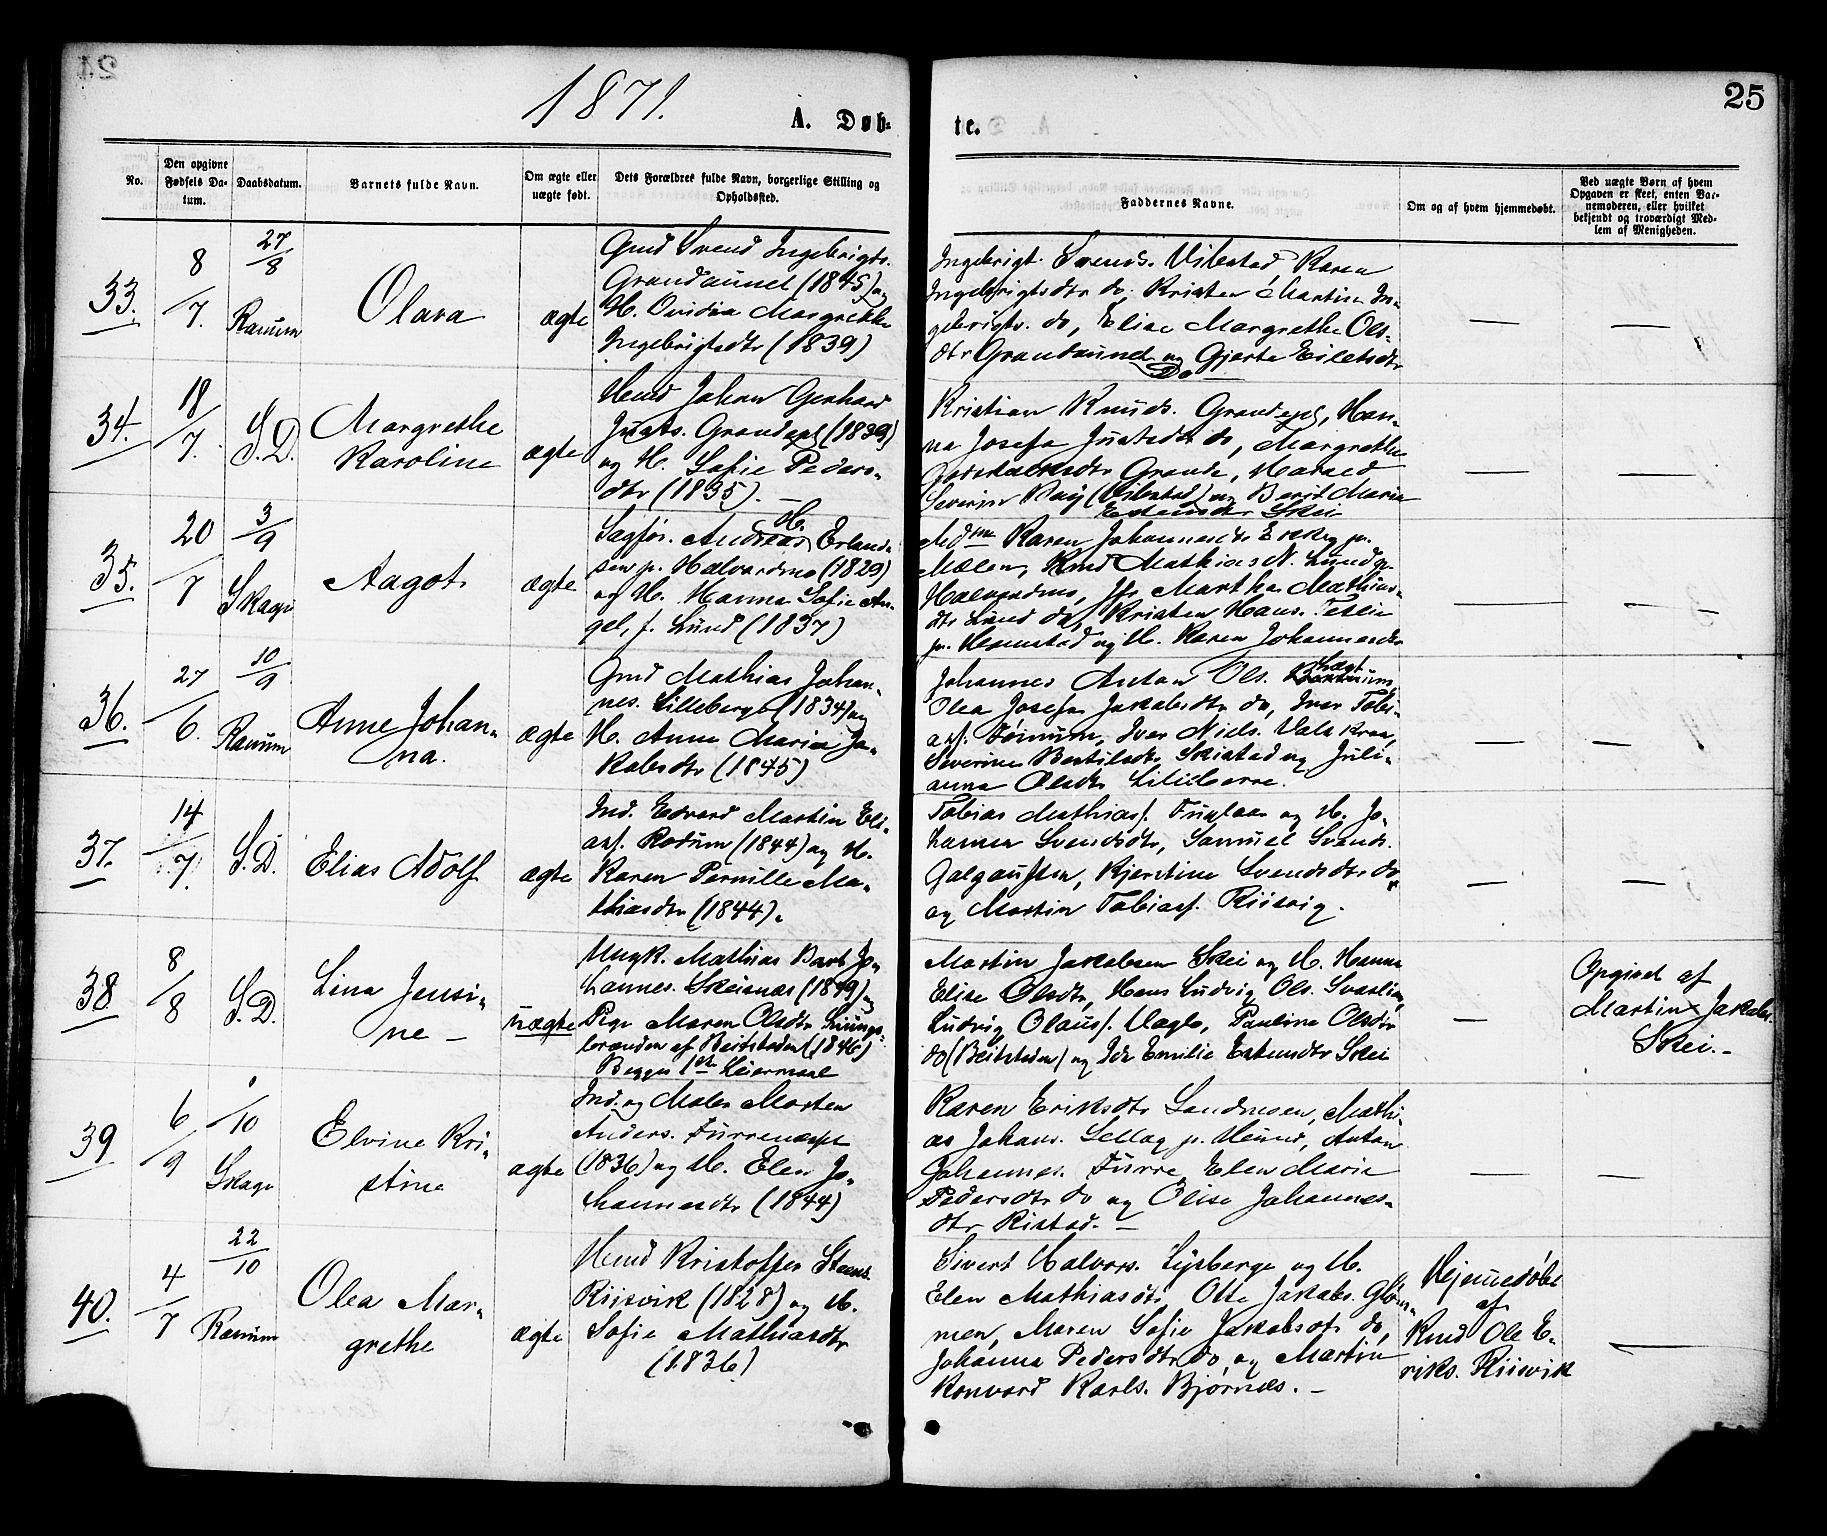 24
1871.
A. Døb-
te.
25
No.
Den opgivne
Fødsels Da-
tum.
Daabsdatum.
Barnets fulde Navn.
Om ægte eller
uægte født.
Dets Forældres fulde Navn, borgerlige Stilling og
Opholdssted.
Faddernes Navne.
Om og af hvem hjemmedøbt.
Ved uægte Børn af hvem
Opgaven er skeet, enten Bar-
nemoderen, eller hvilket
bekjendt og troværdigt Med-
lem af Menigheden.
33.
8/7.
27/8
Ranum
Olava
ægte
Gmd Svend Ingebrigts.
Grandaunet (1845) og
H. Ovidia Margrethe
Ingebrigtsdtr (1839)
Ingebrigt Svends. Vibstad, Karen
Ingebrigtsdtr do. Kristen Martin In-
gebrigts. do, Elise Margrethe Ols-
dtr Grandaunet og Gjerte Eilertsdtr
Do
—
—
34.
18/7.
S.D.
Margrethe
Karoline
ægte
Hmd Johan Gerhard
Justs. Grandepl (1839)
og H. Sofie Peders-
dtr (1835). —
Kristian Knuds. Grandepl, Han-
na Josefa Justsdtr do, Margrethe
Grande,
Severin (Vibstad) og Berit Maria
Estensdtr Skei
—
—
35.
20/7
3/9
Skage
Aagot
ægte
Sagfør. Andreas H. Erland-
sen p. Halvardmo (1829)
og H. Hanna Sofie An-
gel, f. Lund (1837)
Mdme Karen Johannesdtr p.
Mælen, Kmd Mathias N. Lund p.
Halvardmo, Jfr Martha Mathias-
dtr Lund do, Kristen Hans. Tetlie
p. Homstad og H. Karen Johannesdtr
—
—
36.
27/6.
10/9
Ranum
Anne Johan-
na.
ægte
Gmd Mathias Johan-
nes. Lilleberge (1834) og
H. Anne Maria Ja-
kobsdtr (1845)
Johannes Anton Ols.
Olea Josefa Jakobsdtr do, Iver Tobi-
asf. Iver Niels.
Severine Bertilsdtr Skistad og Juli-
anna Olsdtr Lilleberre.
—
—
37.
14/7.
S.D.
Elias Adolf
ægte
Ind. Edvard Martin Eli-
asf. Rodum (1844) og H.
Karen Pernille Ma-
thiasdtr (1844).
Tobias Mathiasf. Fuglaas og H. Jo-
hanna Svendsdtr, Samuel Svends.
Galgauften, Kjerstine Svendsdtr do
og Martin Tobiasf. Riisvig.
—
—
38
8/8
S.D.
Lina Jensi-
ne —
uægte
Ungk. Mathias Bart Jo-
hannes. Skeisnæs (1849) og
Pige Maren Olsdtr Liungs-
brænden af Beitstaden (1846)
Begges 1ste Leiermaal
Martin Jakobsen Skei og H. Hanna
Elise Olsdtr, Hans Ludvig Ols. Svarlien,
Ludvig Olausf. Vagle, Pauline Olsdtr
do (Beitstaden) og Ida Emilie Estensdtr Skei
—
Opgivet af
Martin Jakobs.
Skei. —
39
6/9
1/10
Skage
Elvine Kri-
stine
ægte
Ind. og Maler Morten
Anders. Furrenæspl
(1836) og H. Elen Jo-
hannesdtr (1844)
Karen Eriksdtr Landmoen, Mathi-
as Johans. Sellæg p. Heiund, Anton
Johannes. Furre, Elen Maria
Pedersdtr do og Olise Johannes-
dtr Ristad. —
—
—
40.
4/7
22/10
Ranum
Olea Mar-
grethe
ægte
Hmd Kristoffer Steens.
Riisvik (1828) og H.
Sofie Mathiasdtr
(1836)
Sivert Halvors. Lysberge og H.
Elen Mathiasdtr, Otte Jakobs. Gløm-
men, Maren Sofie Jakobsdtr do,
Johanna Pedersdtr do og Martin
Konvard Karls. Bjørnes. —
Hjemmedøbt
af
Kmd Ole E-
riks. Riisvik
—